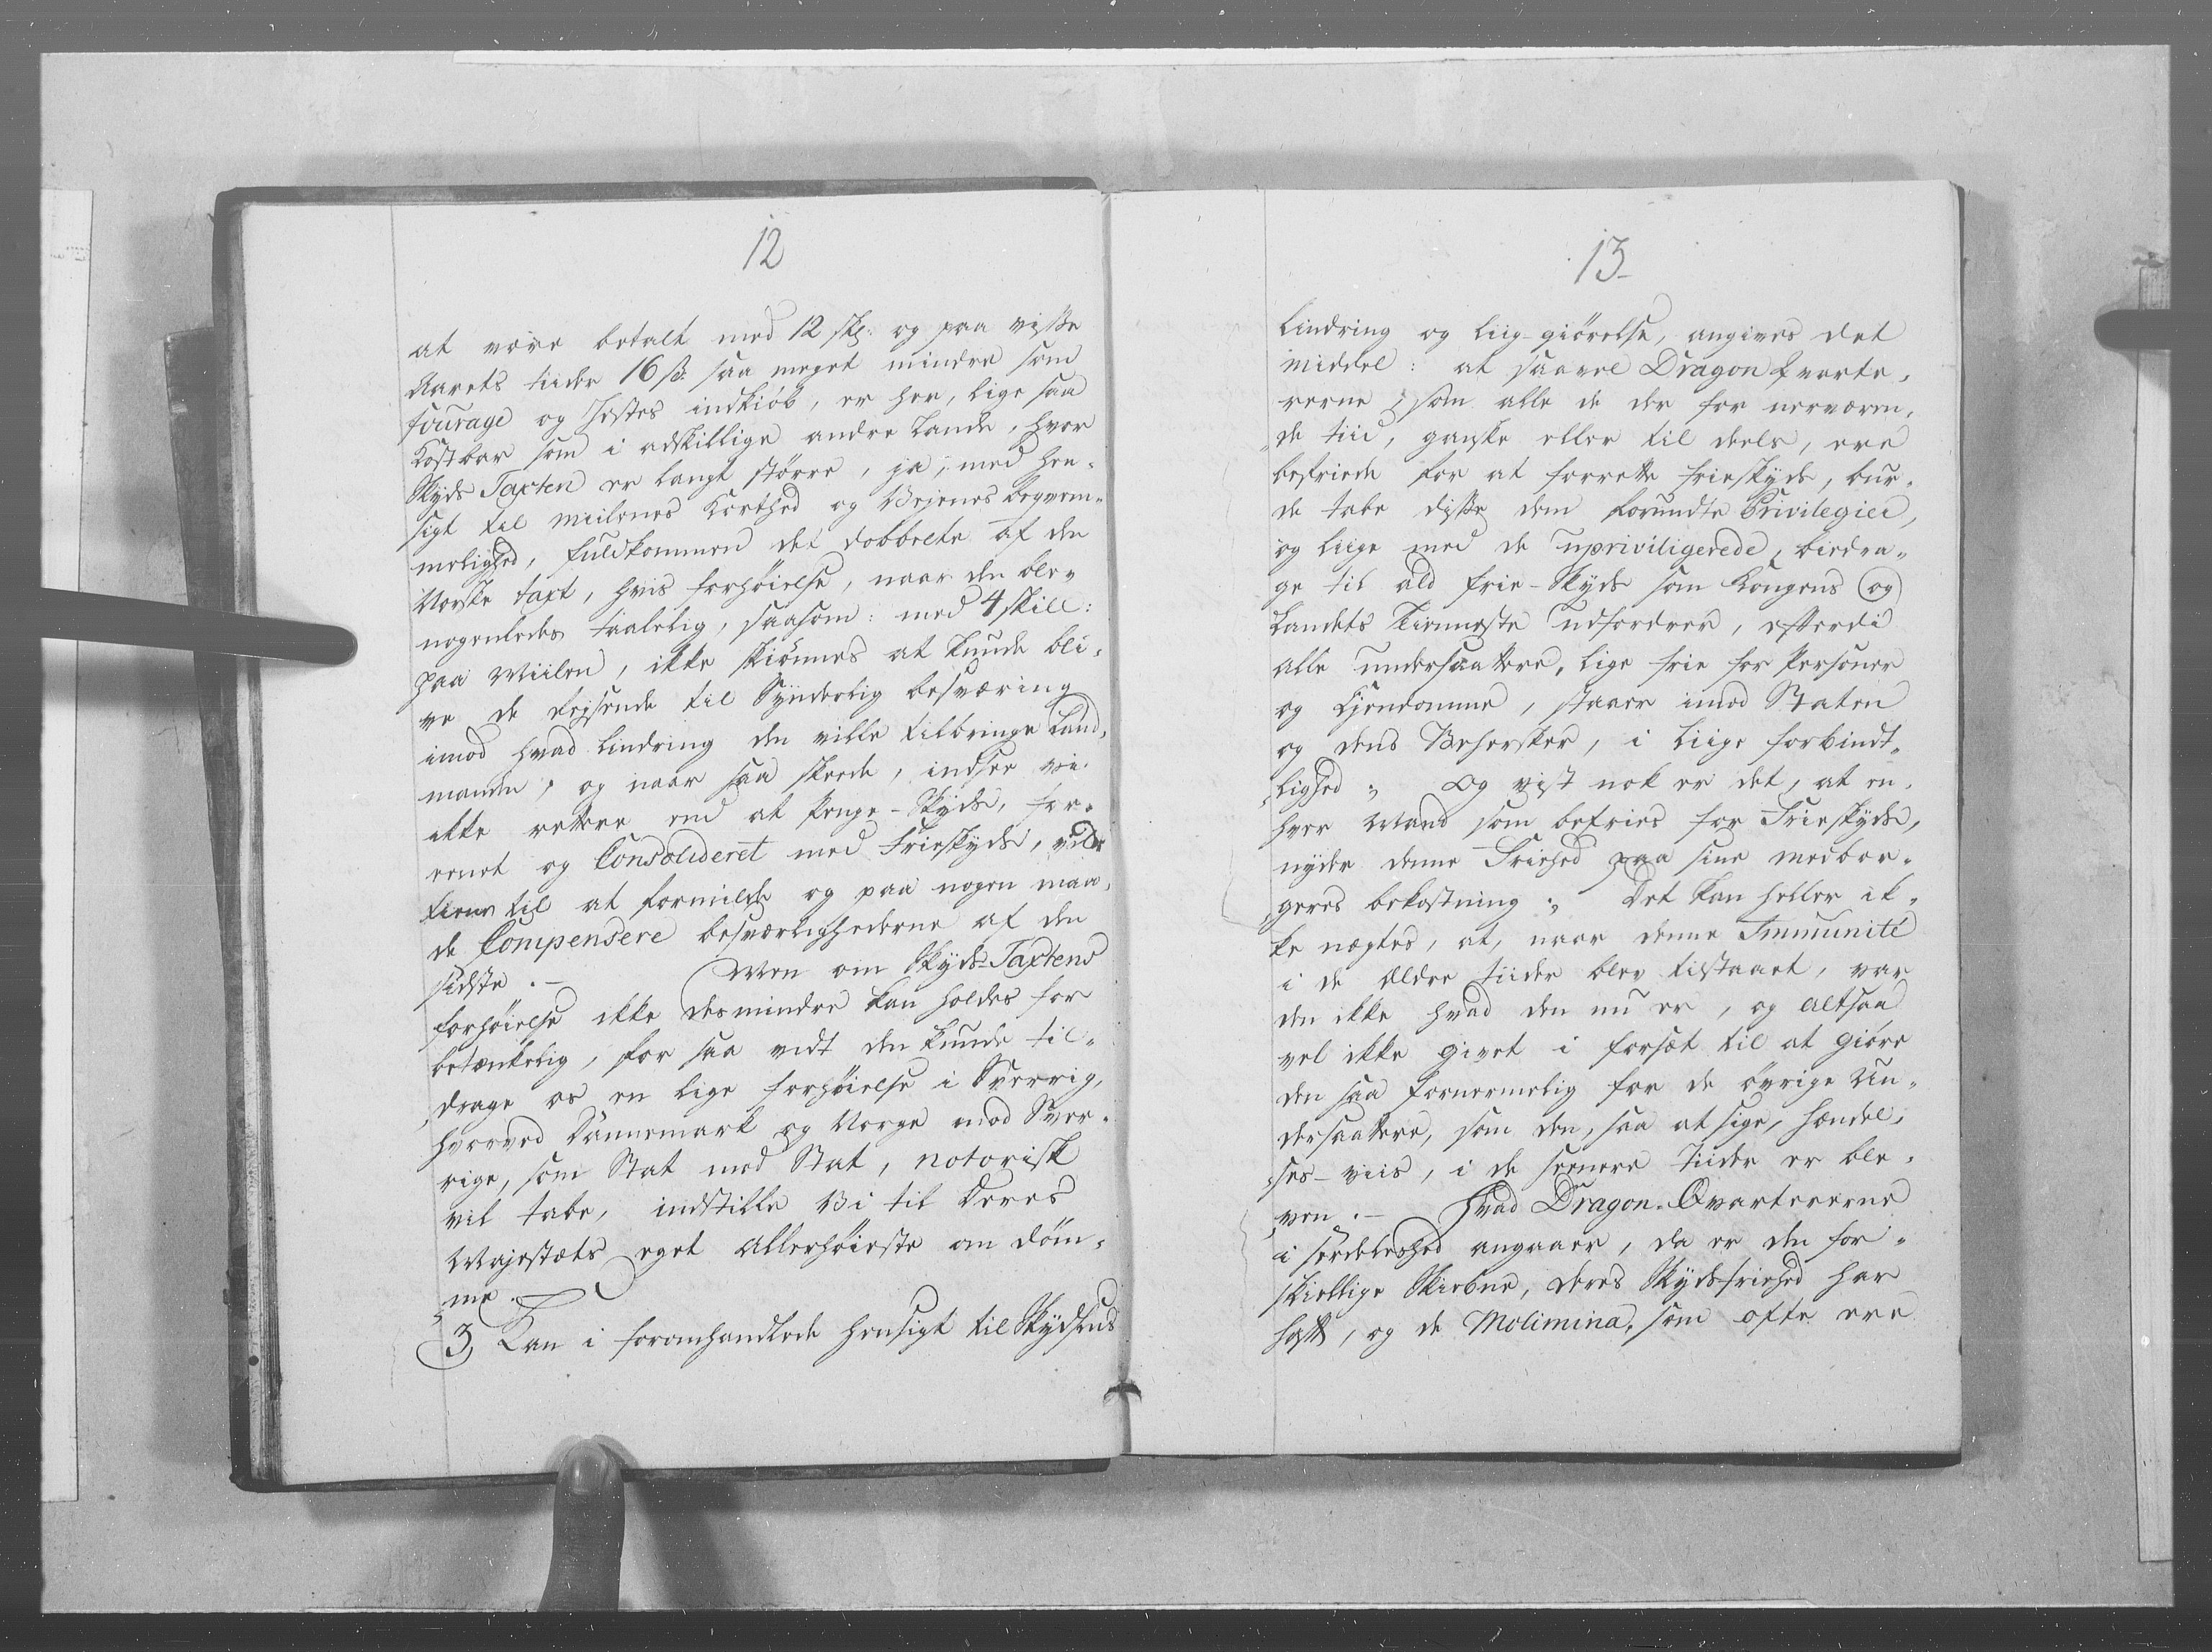 12
at være betalt med 12 skl: og paa visse
Aarets tiider 16 s. saa meget mindre som
fourage og Hestes indkiöb, er her, lige saa
Kostbar som i adskillige andre Lande, hvor
Skyds Taxten er langt större, ja, med Hen-
sigt til miilenes Korthed og Veienes beqvem-
melighed, fuldkommen det dobbelte af den
Norske taxt, hvis forhöielse, naar den blev
nogenledes taalelig, saasom: med 4 skill:
paa Miilen, ikke skiönnes at kunde bli-
ve de Rejsende til Synderlig besværing
imod hvad Lindring den ville tilbringe Land-
manden, og naar saa skeede, indsee vi
ikke rettere end at Penge-Skyds, for-
eenet og Consolideret med Frieskyds, vilde
tiene til at formilde og paa nogen maa-
de Compensere besværlighederne af den
sidste. – Men om Skyds-Taxtens
forhöielse ikke desmindre kan holdes for
betænkelig, for saa vidt den kunde til-
drage os en lige forhöielse i Sverrig,
hvorved Dannemark og Norge mod Sver-
rige, som Stat mod Stat, notorisk
vil tabe, indstille Vi til Deres
Majestæts eget Allerhöieste om döm-
me.
3, Kan i foromhandlede hensigt til Skydsens
13
Lindring og Liig-giörelse, angives det
middel: at saavel Dragon Qvarte-
rerne, som alle de der for nerværen-
de tiid, ganske eller til deels, ere
befriede for at forrette frieskyds, bur-
de tabe disse dem forundte Privilegier,
og liige med de upriviligerede, biedra-
ge til ald frie-Skyds som Kongens og
Landets Tienneste udfordrer, efterdi
alle undersaattere, lige frie for Personer
og Ejendomme, staaer imod Staten
og dens Behersker, i liige forbindt-
lighed; Og vist nok er det, at en-
hver Mand som befries for Frieskyds,
nyder denne Friehed paa sine medbor-
geres bekostning; Det kan heller ik-
ke nægtes, at, naar denne Immunité
i de Eldre tiider blev tilstaaet, var
den ikke hvad den nu er, og altsaa
vel ikke givet i forsæt til at giöre
den saa fornermelig for de övrige Un-
dersaattere, som den, saa at sige, hændel-
ses-viis, i de seenere tiider er ble-
ven. – Hvad Dragon-Qvartererne
i serdeleshed angaaer, da er den for-
skiellige Skiebne, deres Skydsfriehed har
haft, og de Molimina, som ofte ere